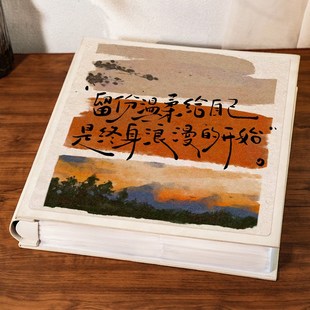 "留份温柔给自己
是终身浪漫的开始"。